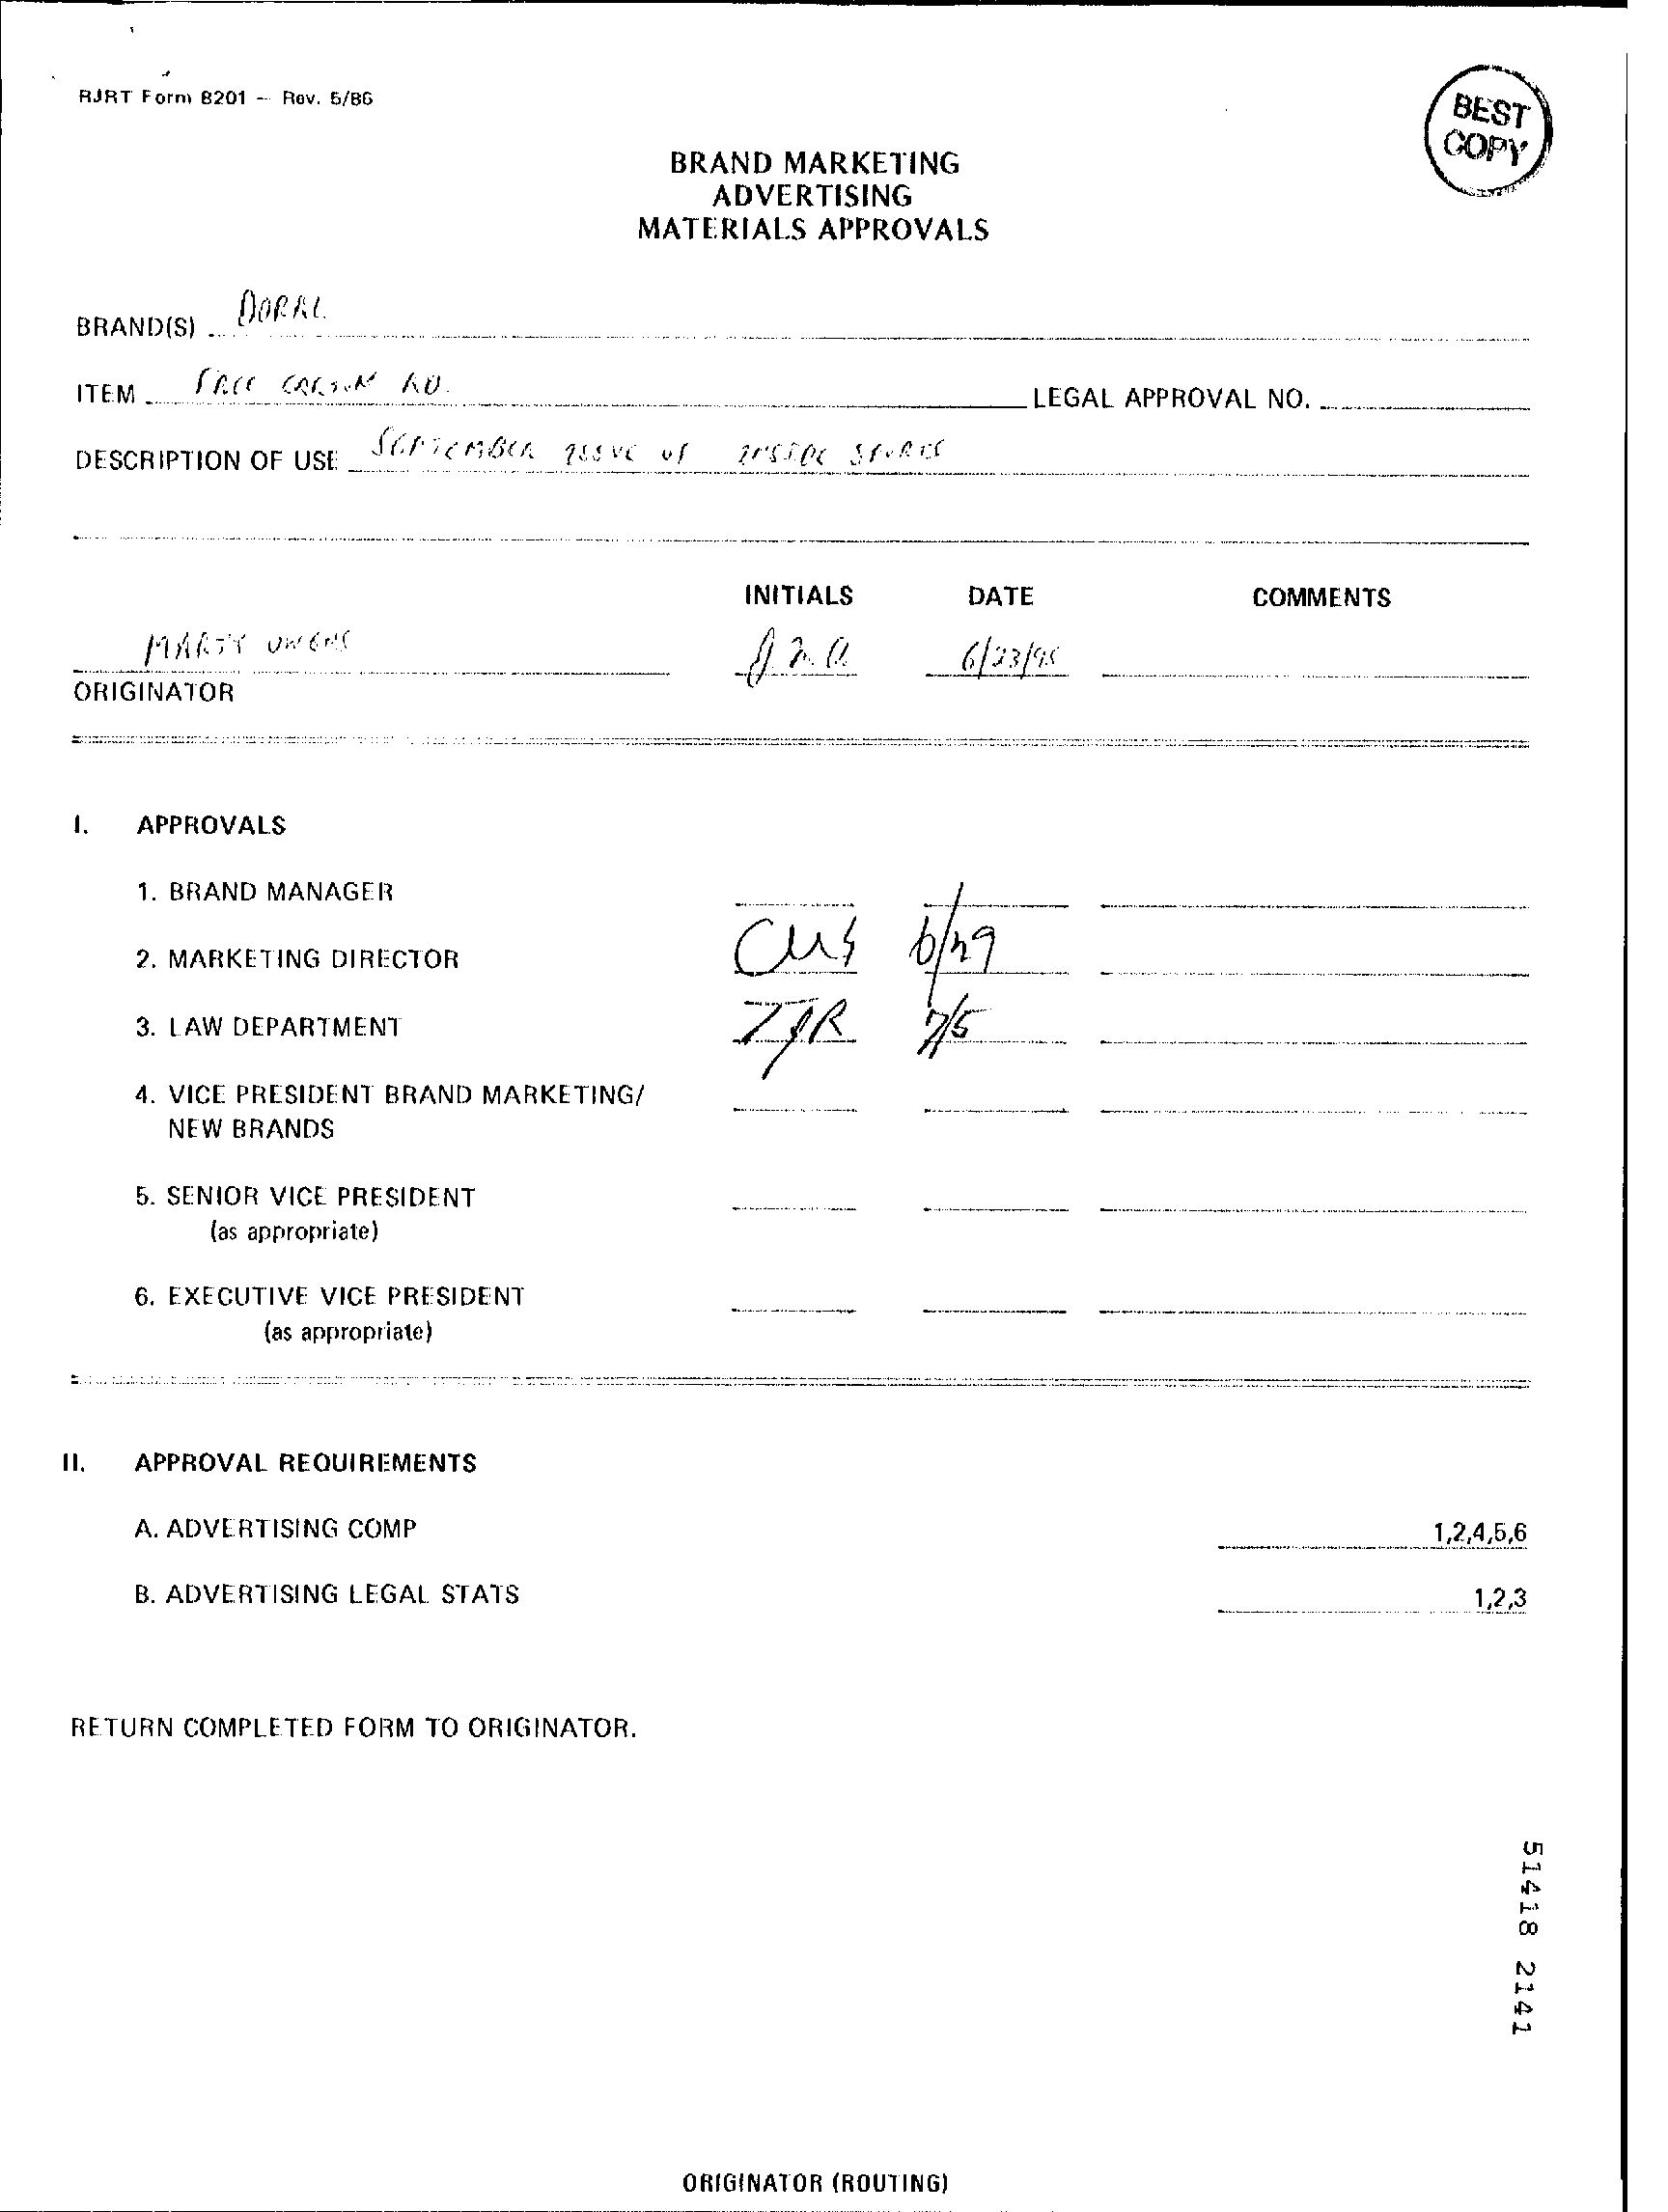 RJRT Form 8201 -- Rev. 5/86
BEST
COPY
BRAND MARKETING
ADVERTISING
MATERIALS APPROVALS
BRAND(S) DORAL
ITEM FREE CARTON AD.
LEGAL APPROVAL NO.
DESCRIPTION OF USE SEPTEMBER ISSUE OF INSIDE SPORTS
INITIALS DATE COMMENTS
MARTY OWENS 6/23/95
ORIGINATOR
I. APPROVALS
1. BRAND MANAGER
2. MARKETING DIRECTOR 6/29
3. LAW DEPARTMENT 7/5
4. VICE PRESIDENT BRAND MARKETING/
NEW BRANDS
5. SENIOR VICE PRESIDENT
(as appropriate)
6. EXECUTIVE VICE PRESIDENT
(as appropriate)
II. APPROVAL REQUIREMENTS
A. ADVERTISING COMP 1,2,4,5,6
B. ADVERTISING LEGAL STATS 1,2,3
RETURN COMPLETED FORM TO ORIGINATOR.
51418 2141
ORIGINATOR (ROUTING)